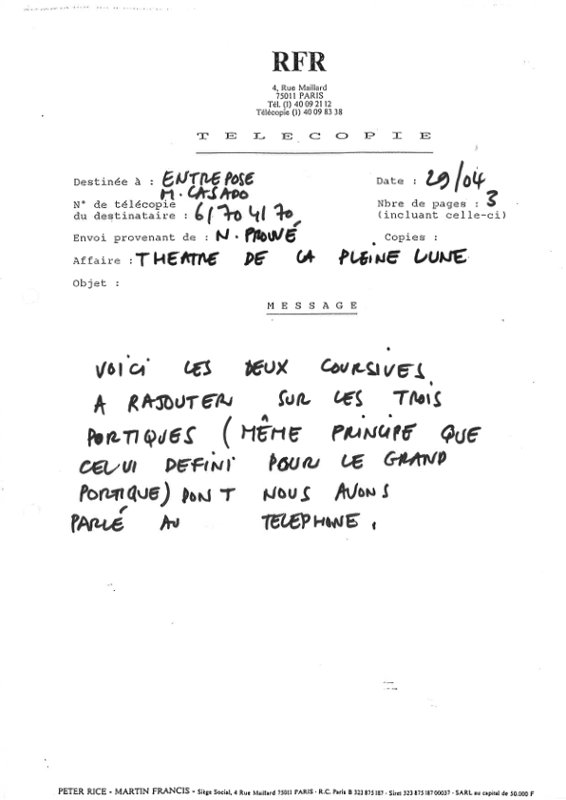 RFR
4, Rue Maillard
75011 PARIS
Tél. (1) 40 09 21 12
Télécopie (1) 40 09 83 38
T E L E C O P I E
Destinée à : ENTREPOSE
M. CASADO
Date : 29/04
N° de télécopie
du destinataire : 61 70 41 70
Nbre de pages : 3
(incluant celle-ci)
Envoi provenant de : N. PROUVÉ
Copies :
Affaire : THEATRE DE LA PLEINE LUNE
Objet :
M E S S A G E
VOICI LES DEUX COURSIVES
A RAJOUTER SUR LES TROIS
PORTIQUES (MÊME PRINCIPE QUE
CELUI DEFINI POUR LE GRAND
PORTIQUE) DONT NOUS AVONS
PARLÉ AU TELEPHONE.
PETER RICE - MARTIN FRANCIS - Siège Social, 4 Rue Maillard 75011 PARIS - R.C. Paris B 323 875 187 - Siret 323 875 187 00037 - SARL au capital de 50.000 F